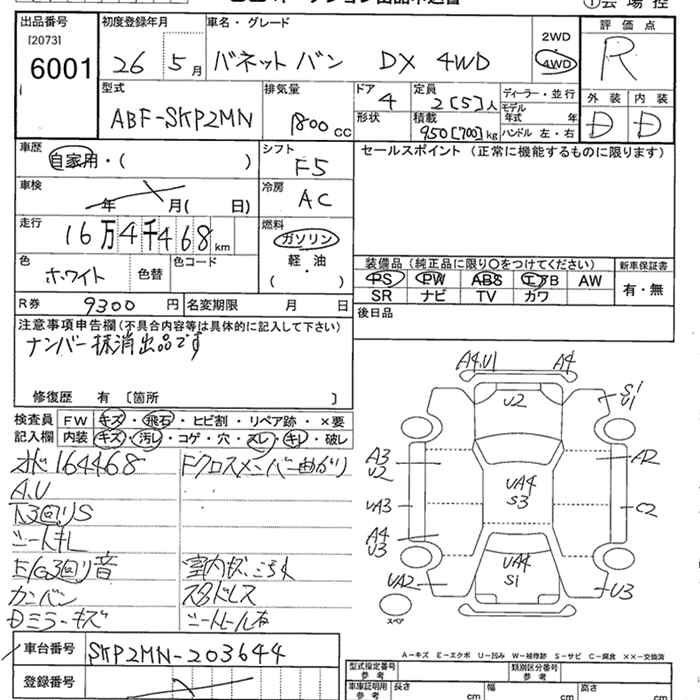 出品番号 初度登録年月 車名・グレード
[2073]
6001
26 5月 バネットバン DX 4WD
2WD
4WD
評価点
R
型式 排気量 ドア 定員 ディーラー・並行
ABF-SKP2MN 1800cc 4 2[5]人
モデル
年式 年
外装 内装
形状 積載 ハンドル 左・右
950[700]kg
D D
車歴 シフト セールスポイント (正常に機能するものに限ります)
自家用・( )
F5
車検 冷房
年 月( 日)
AC
走行 燃料
16万4千468km
ガソリン
軽・油
( ・ )
色 色替 色コード
ホワイト
装備品 (純正品に限り○をつけてください) 新車保証書
PS PW ABS エアB AW
SR ナビ TV カワ
有・無
R券 9300円 名変期限 月 日
後日品
注意事項申告欄 (不具合内容等は具体的に記入して下さい)
ナンバー抹消出品です
修復歴 有 〔箇所 〕
検査員 FW キズ・飛石・ヒビ割・リペア跡・×要
記入欄 内装 キズ・汚レ・コゲ・穴・スレ・キレ・破レ
164468 Fクロスメンバー曲がり
A.U
下3回りS
シートキレ
E/G3回り音
カンバン スタドレス
Dミラーキズ シートレール有
A4,U1 A4
U2
S1
U1
A3
U2
A2
UA4
S3
UA3
C2
A4
U3
UA4
S1
UA2
U3
スペア
車台番号 SKP2MN-203644
登録番号
A-キズ E-エクボ U-凹み W-補修跡 S-サビ C-腐食 ××-交換済
型式指定番号
参考
類別区分番号
参考
車庫証明用
参考
長さ cm 幅 cm 高さ cm